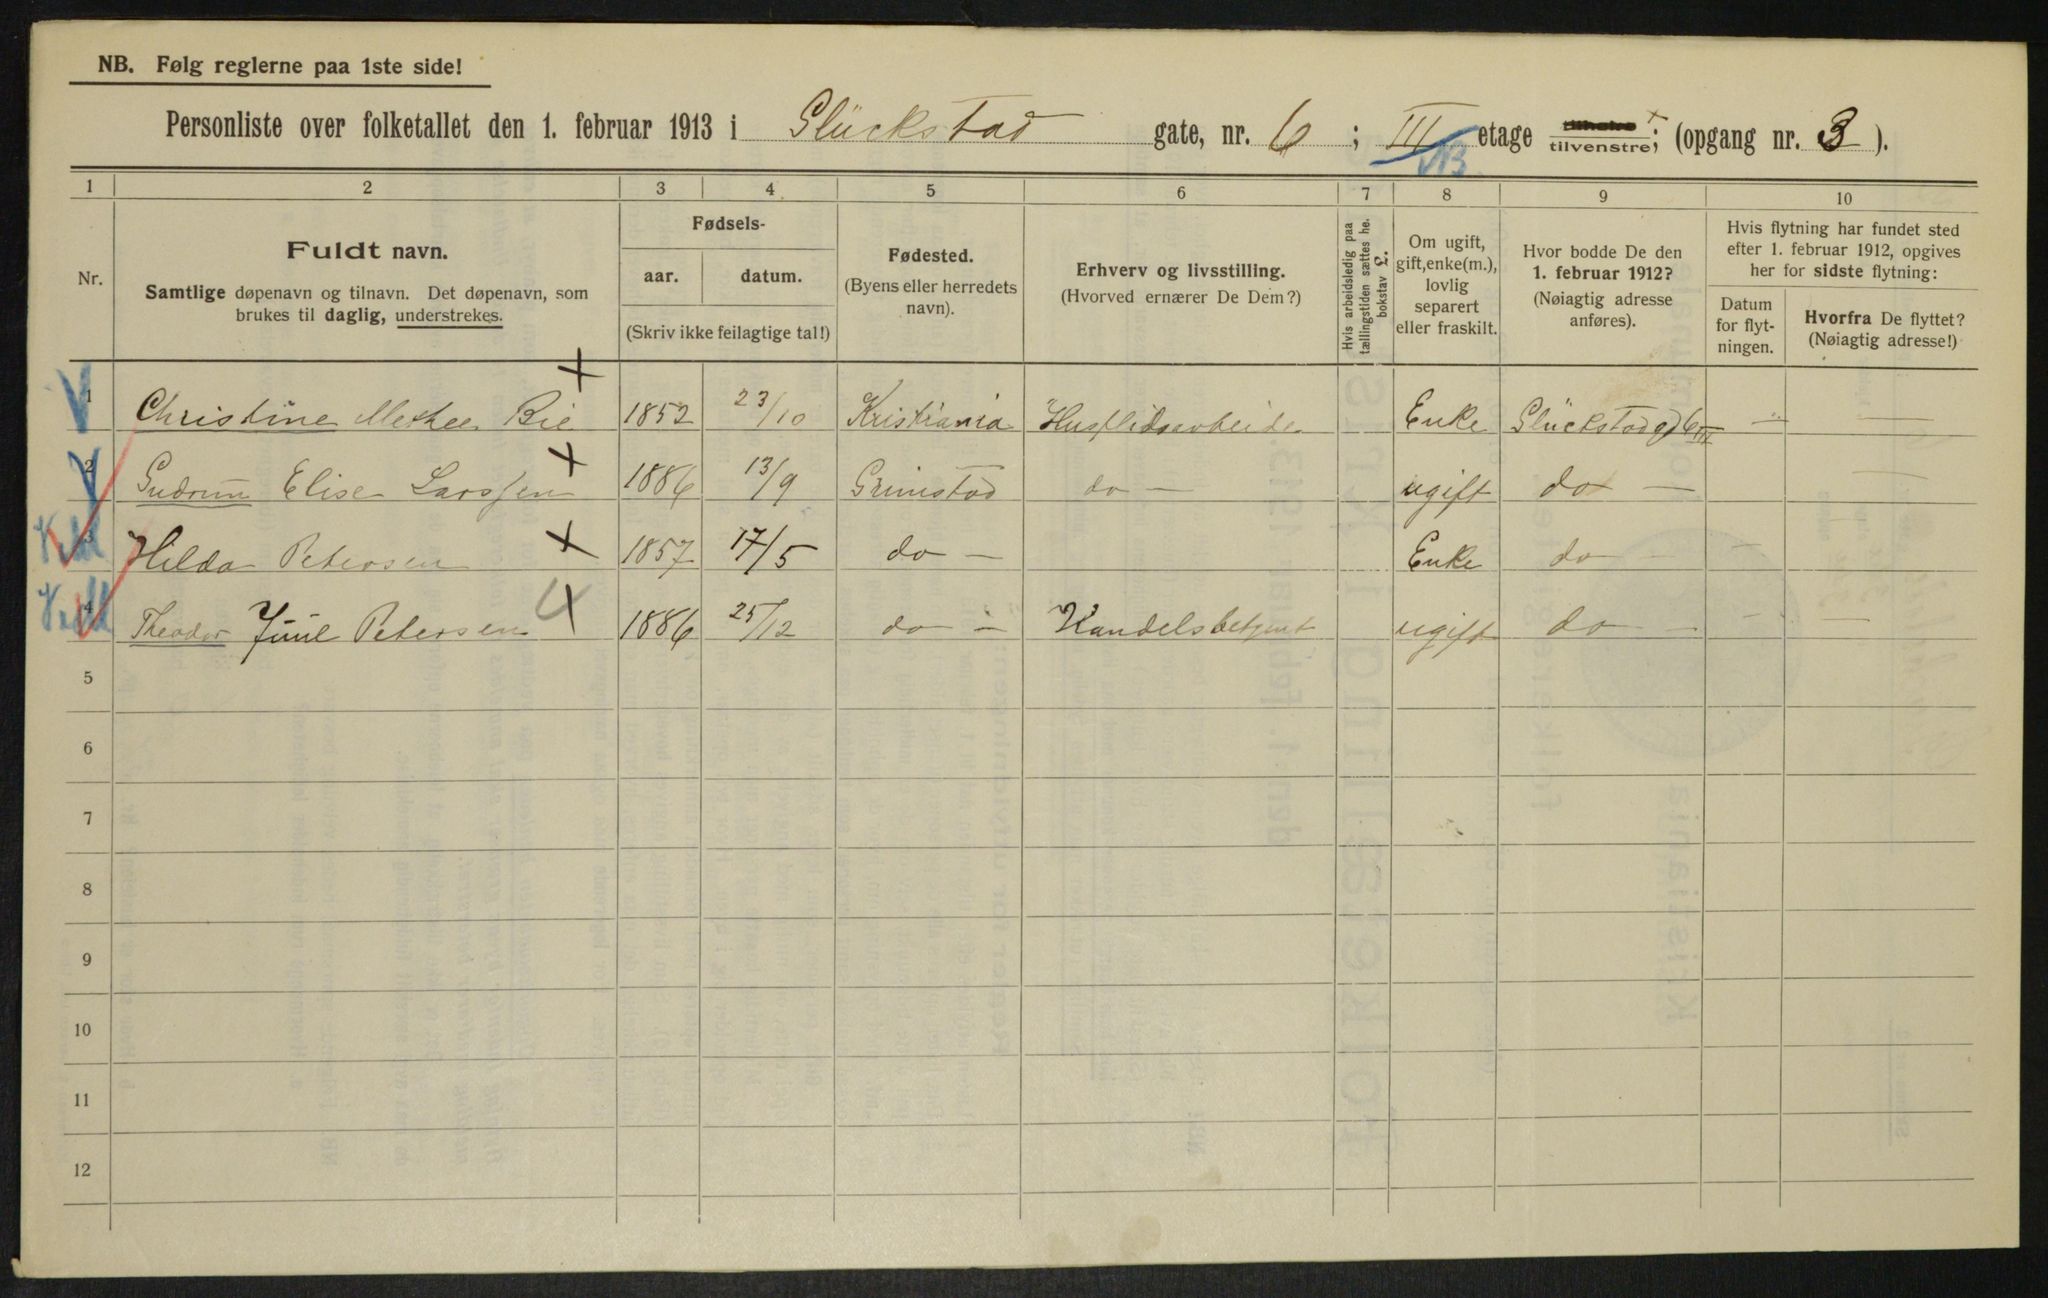 NB. Følg reglerne paa 1ste side!
Personliste over folketallet den 1. februar 1913 i Glückstad gate, nr. 6 ; III etage tilhøire tilvenstre; (opgang nr. 3 ).
1 2 3 4 5 6 7 8 9 10
Nr.
Fuldt navn.
Samtlige døpenavn og tilnavn. Det døpenavn, som
brukes til daglig, understrekes.
Fødsels-
aar. datum.
(Skriv ikke feilagtige tal!)
Fødested.
(Byens eller herredets
navn).
Erhverv og livsstilling.
(Hvorved ernærer De Dem?)
Hvis arbeidsledig paa
tællingstiden sættes he.
bokstav L.
Om ugift,
gift, enke(m.),
lovlig
separert
eller fraskilt.
Hvor bodde De den
1. februar 1912?
(Nøiagtig adresse
anføres).
Hvis flytning har fundet sted
efter 1. februar 1912, opgives
her for sidste flytning:
Datum
for flyt-
ningen.
Hvorfra De flyttet?
(Nøiagtig adresse!)
1 Christine Bie 1852 23/10 Kristiania Husflidsarbeide Enke Glückstadgd 6 III — —
2 Gudrun Elise Larssen 1886 13/9 Grimstad do — ugift do — —
3 Hilda Petersen 1857 17/5 do — Enke do — — —
4 Theodor Juul Petersen 1886 25/12 do — Handelsbetjent ugift do — — —
5
6
7
8
9
10
11
12